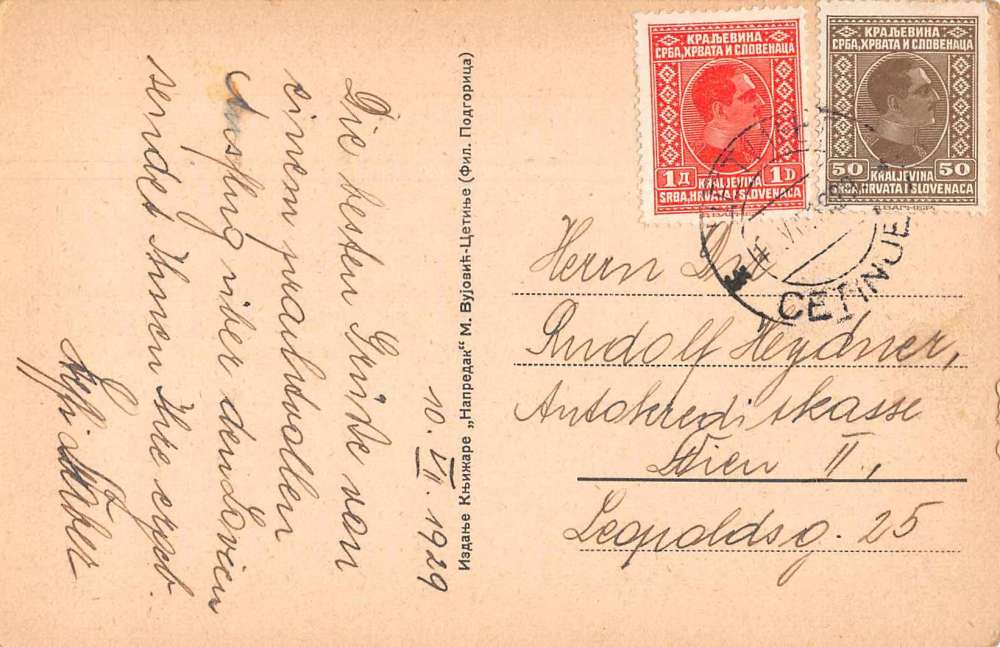 Die besten Grüße von
einem prachtvollen
Ausflug über den Lovćen
sendet Ihnen Ihre ergeb.
10. VII. 1929
Издање Књижаре „Напредак“ М. Вујовић-Цетиње (Фил. Подгорица)
КРАЉЕВИНА
СРБА, ХРВАТА И СЛОВЕНАЦА
1Д 1D
KRALJEVINA
SRBA, HRVATA I SLOVENACA
КРАЉЕВИНА
СРБА, ХРВАТА И СЛОВЕНАЦА
50 50
KRALJEVINA
SRBA, HRVATA I SLOVENACA
CETINJE
Herrn Dir
Rudolf Heydner,
Autokreditkasse
Wien II.,
Leopoldsg. 25